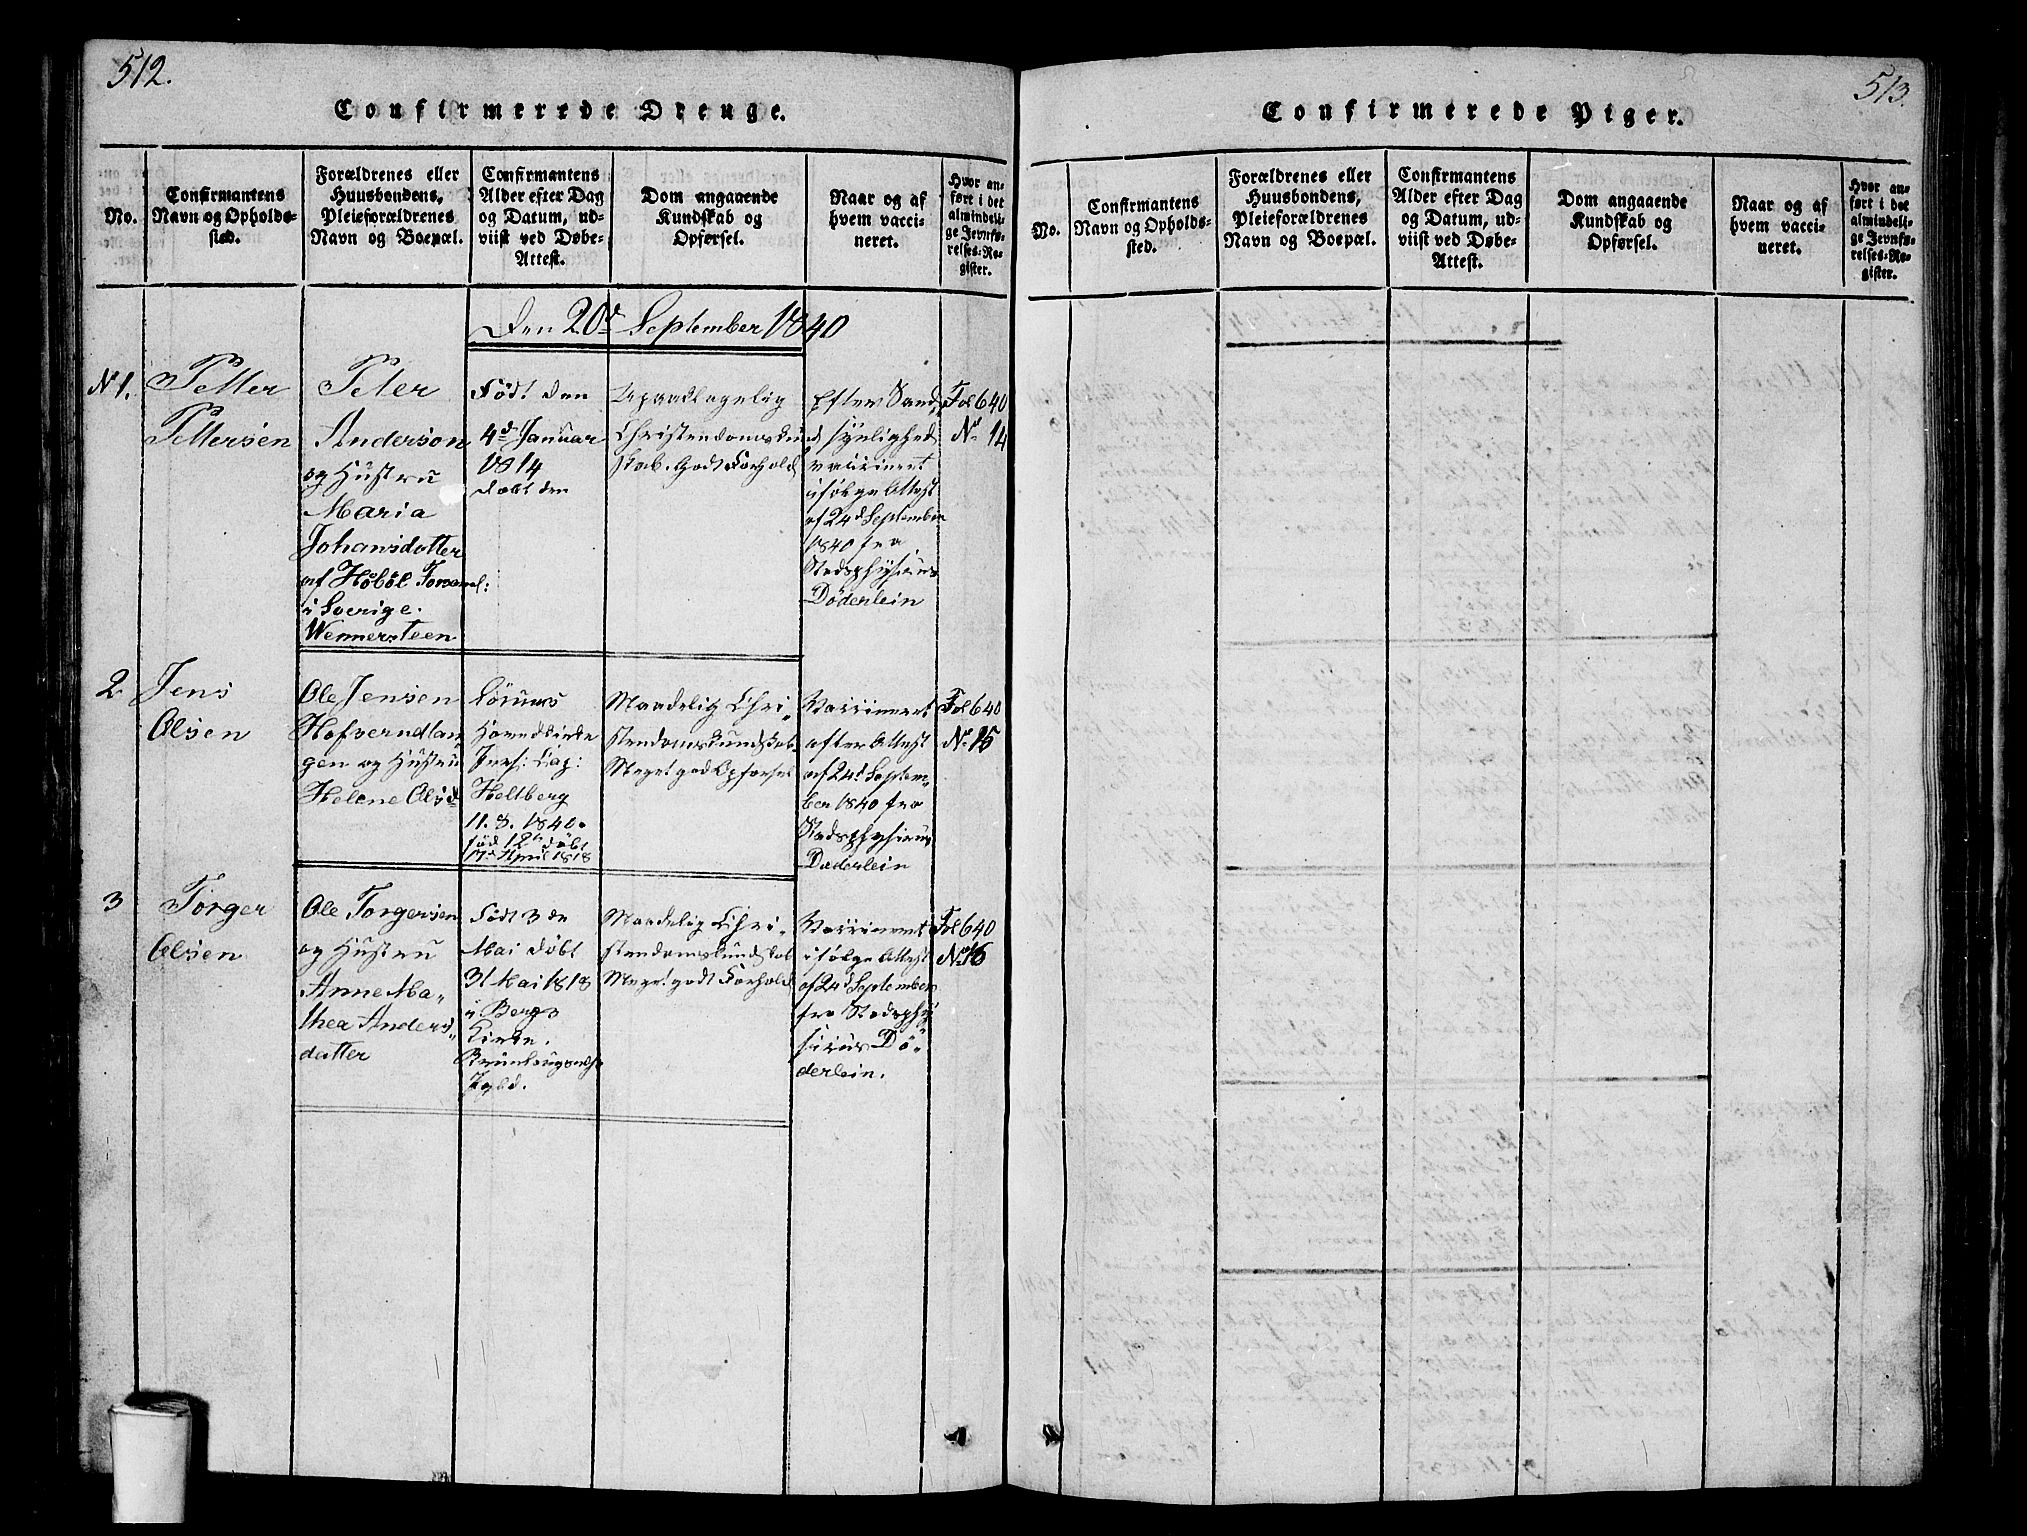 512.
Confirmerede Drenge.
No.
Confirmantens
Navn og Opholds-
sted.
Forældrenes eller
Huusbondens,
Pleieforældrenes
Navn og Boepæl.
Confirmantens
Alder efter Dag
og Datum, ud-
viist ved Døbe-
Attest.
Dom angaaende
Kundskab og
Opførsel.
Naar og af
hvem vacci-
neret.
Hvor an-
ført i det
almindeli-
ge Jevnfø-
relses-Re-
gister.
Den 20d September 1840
N 1.
Petter
Pettersen
Peter
Anderson
og Hustru
Maria
Johansdatter
af Høbøl
i Sverige.
Wennersteen
Født den
4de Januar
1814
Døbt den
Upaaklagelig
Christendomskund
skab. Godt Forhold
Efter Sand
synlighed
vaccineret
ifølge Attest
af 24d September
1840 fra
Stadsphysicus
Döderlein
Fol 640
No 14
2
Jens
Olsen
Ole Jensen
og Hustru
Helene Olsd
Hovedkirke
Cap:
Heltberg
11. 8. 1840.
fød 12te døbt
17de April 1818
Maadelig Chri-
stendomskundskab.
Meget god Opførsel
Vaccineret
efter Attest
af 24d Septem-
ber 1840 fra
Stadsphysicus
Døderlein
Fol 640
No. 15
3
Torger
Olsen
Ole Torgersen
og Hustru
Anne Ma-
thea Anders-
datter
Født 3de
Mai døbt
31 Mai 1818
i Bergs
Kirke.
Maadelig Chri-
stendomskundskab
Meget godt Forhold
Vaccineret
ifølge Attest
af 24d September
fra Stadsphy
sicus Dö-
derlein.
Fol 640
No 16
513.
Confirmerede Piger.
No.
Confirmantens
Navn og Opholds-
sted.
Forældrenes eller
Huusbondens,
Pleieforældrenes
Navn og Boepæl.
Confirmantens
Alder efter Dag
og Datum, ud-
viist ved Døbe-
Attest.
Dom angaaende
Kundskab og
Opførsel.
Naar og af
hvem vacci-
neret.
Hvor an-
ført i det
almindeli-
ge Jevnfø-
relses-Re-
gister.